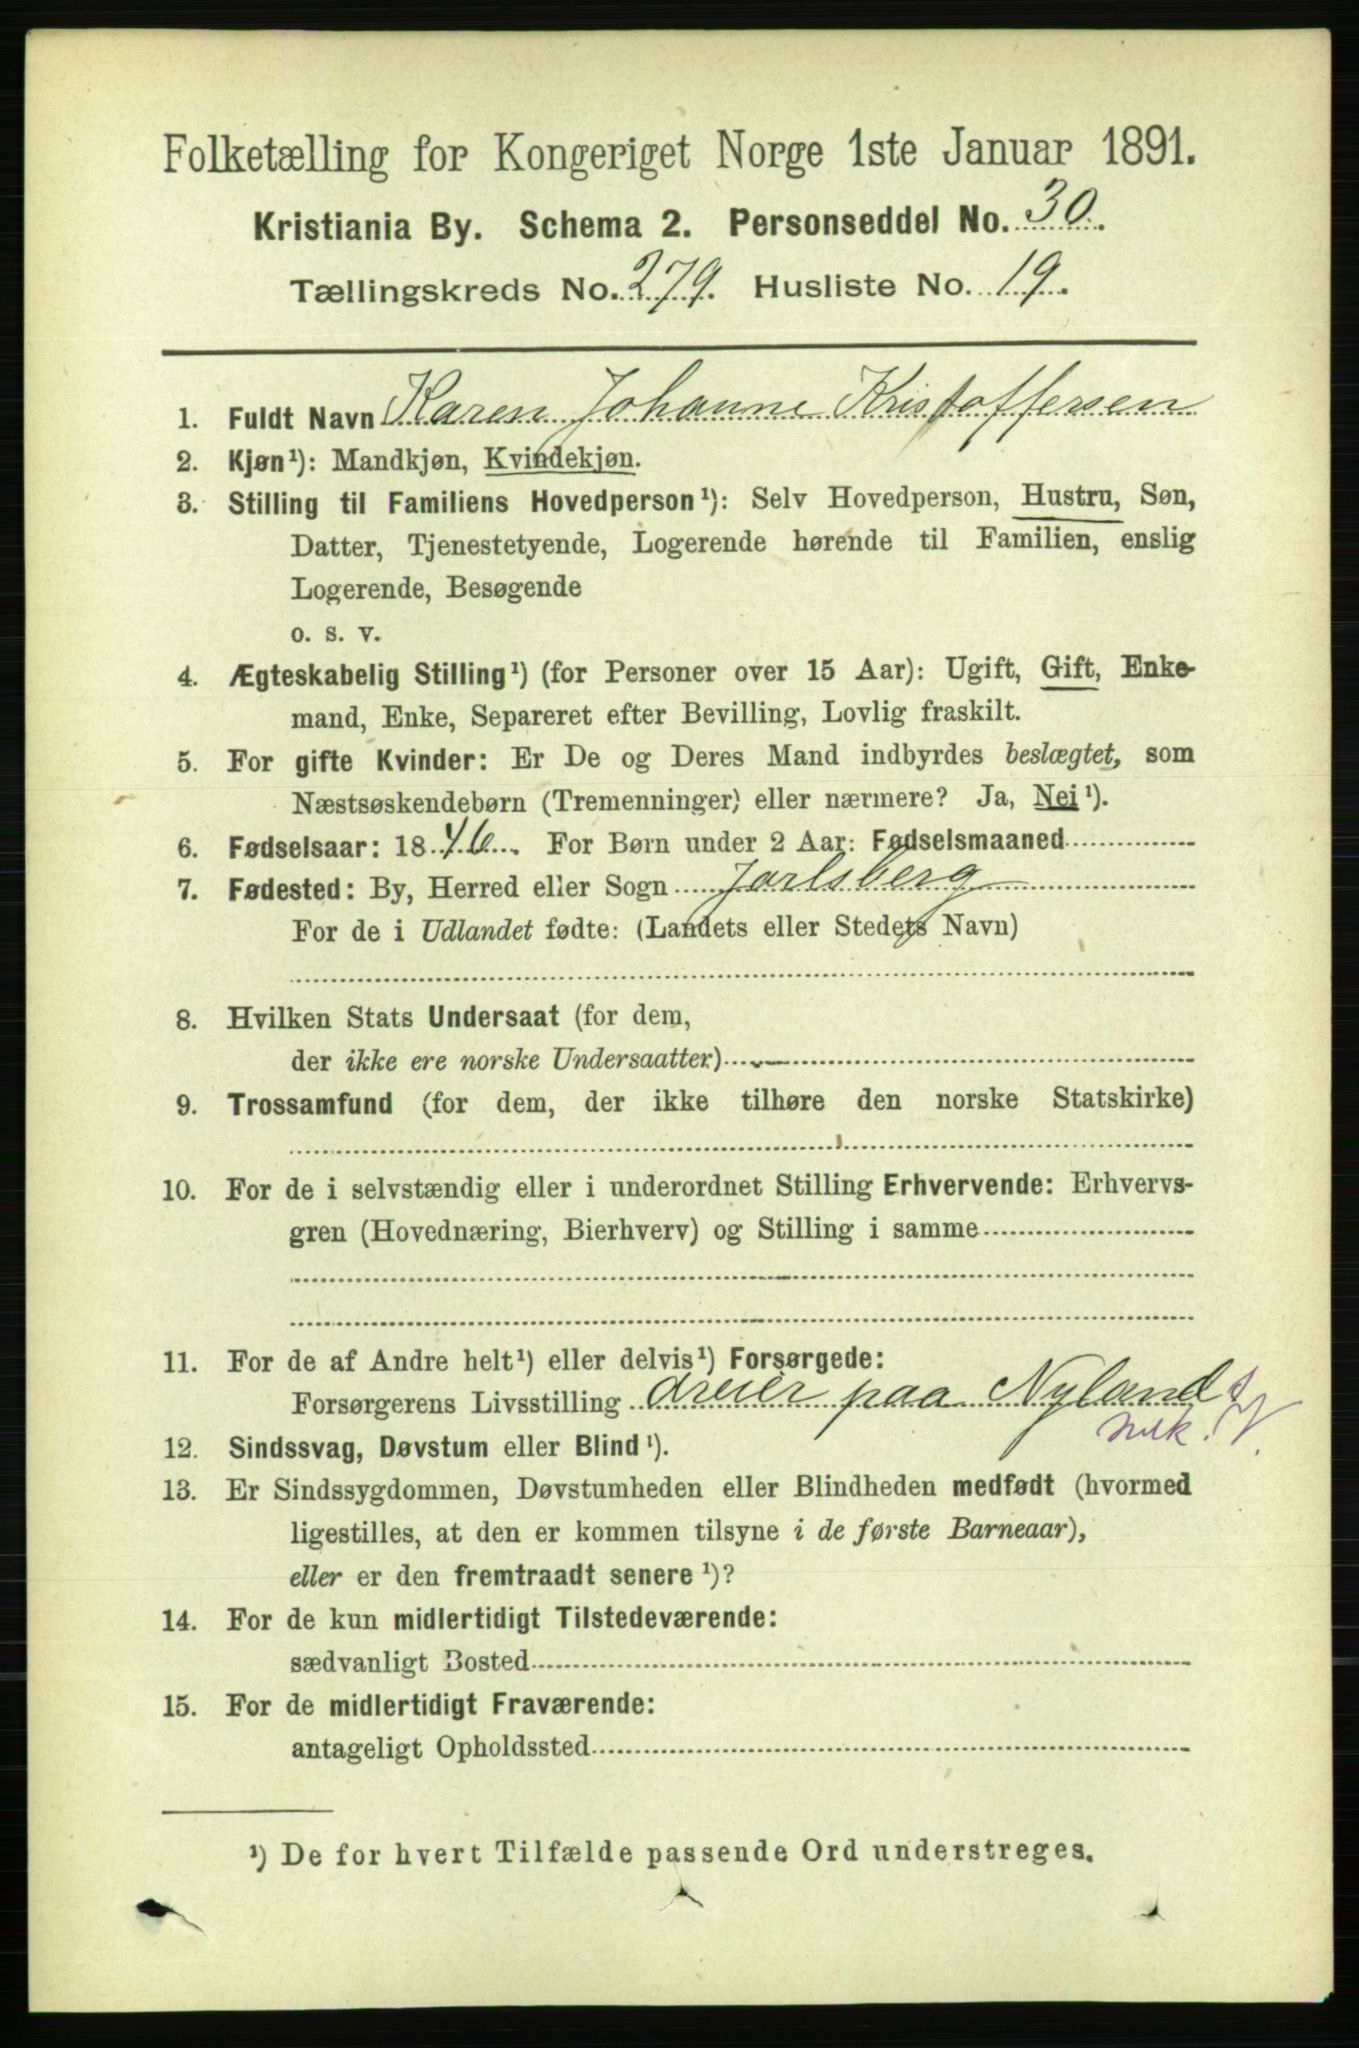 Folketælling for Kongeriget Norge 1ste Januar 1891.
Kristiania By. Schema 2. Personseddel No. 30.
Tællingskreds No. 279. Husliste No. 19.
1. Fuldt Navn Karen Johanne Kristoffersen
2. Kjøn¹): Mandkjøn, Kvindekjøn.
3. Stilling til Familiens Hovedperson¹): Selv Hovedperson, Hustru, Søn,
Datter, Tjenestetyende, Logerende hørende til Familien, enslig
Logerende, Besøgende
o. s. v.
4. Ægteskabelig Stilling¹) (for Personer over 15 Aar): Ugift, Gift, Enke-
mand, Enke, Separeret efter Bevilling, Lovlig fraskilt.
5. For gifte Kvinder: Er De og Deres Mand indbyrdes beslægtet, som
Næstsøskendebørn (Tremenninger) eller nærmere? Ja, Nei¹).
6. Fødselsaar: 1846. For Børn under 2 Aar: Fødselsmaaned
7. Fødested: By, Herred eller Sogn Jarlsberg
For de i Udlandet fødte: (Landets eller Stedets Navn)
8. Hvilken Stats Undersaat (for dem,
der ikke ere norske Undersaatter)
9. Trossamfund (for dem, der ikke tilhøre den norske Statskirke)
10. For de i selvstændig eller i underordnet Stilling Erhvervende: Erhvervs-
gren (Hovednæring, Bierhverv) og Stilling i samme
11. For de af Andre helt¹) eller delvis¹) Forsørgede:
Forsørgerens Livsstilling dreier paa Nyland
mek. V.
12. Sindssvag, Døvstum eller Blind¹).
13. Er Sindssygdommen, Døvstumheden eller Blindheden medfødt (hvormed
ligestilles, at den er kommen tilsyne i de første Barneaar),
eller er den fremtraadt senere¹)?
14. For de kun midlertidigt Tilstedeværende:
sædvanligt Bosted
15. For de midlertidigt Fraværende:
antageligt Opholdssted
¹) De for hvert Tilfælde passende Ord understreges.